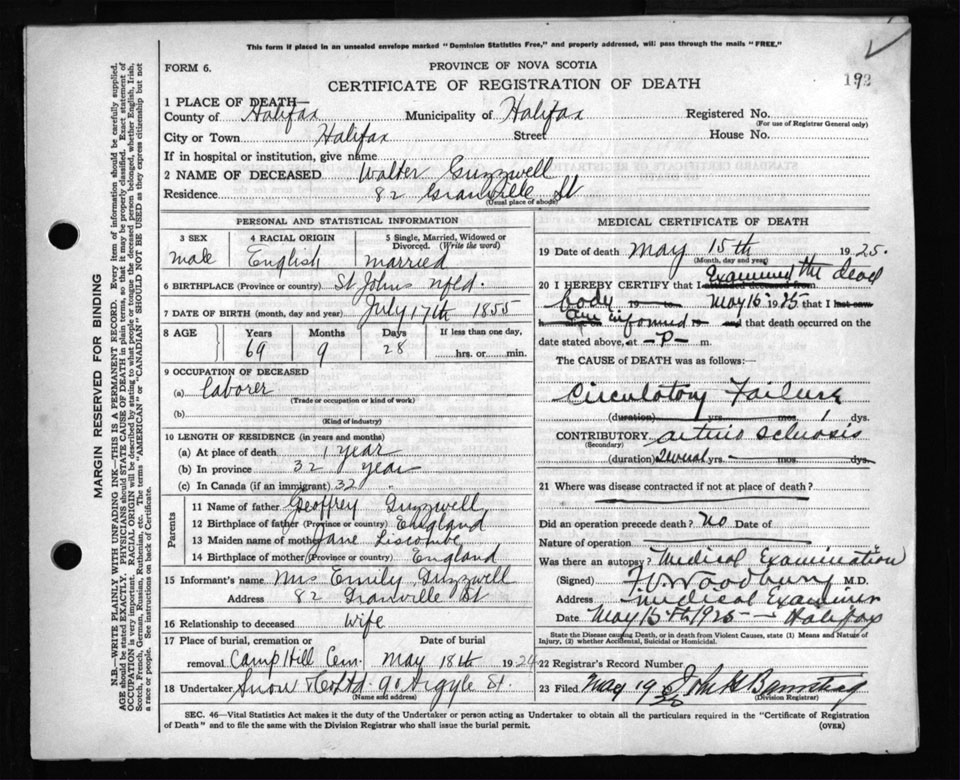 This form if placed in an unsealed envelope marked "Dominion Statistics Free," and properly addressed, will pass through the mails "FREE."
FORM 6.
PROVINCE OF NOVA SCOTIA
192
CERTIFICATE OF REGISTRATION OF DEATH
1 PLACE OF DEATH—
County of Halifax Municipality of Halifax Registered No.
(For use of Registrar General only)
City or Town Halifax Street House No.
If in hospital or institution, give name
2 NAME OF DECEASED Walter Guzzwell
Residence 82 Granville St
(Usual place of abode)
PERSONAL AND STATISTICAL INFORMATION
3 SEX 4 RACIAL ORIGIN 5 Single, Married, Widowed or Divorced. (Write the word)
male English married
6 BIRTHPLACE (Province or country) St Johns nfld.
7 DATE OF BIRTH (month, day and year) July 17th 1855
8 AGE Years Months Days If less than one day,
69 9 28 hrs. or min.
9 OCCUPATION OF DECEASED
(a) laborer
(Trade or occupation or kind of work)
(b)
(Kind of industry)
10 LENGTH OF RESIDENCE (in years and months)
(a) At place of death 1 year
(b) In province 32 year
(c) In Canada (if an immigrant) 32 "
Parents
11 Name of father Geoffrey Guzzwell
12 Birthplace of father (Province or country) England
13 Maiden name of mother Jane Liscombe
14 Birthplace of mother (Province or country) England
15 Informant's name Mrs Emily Guzzwell
Address 82 Granville St
16 Relationship to deceased wife
17 Place of burial, cremation or removal Date of burial
Camp Hill Cem. May 18th 192
18 Undertaker Snow & Co Ltd 90 Argyle St.
(Name and address)
MEDICAL CERTIFICATE OF DEATH
19 Date of death May 15th 1925.
(Month, day and year)
20 I HEREBY CERTIFY that I attended deceased from Examined the dead
body 19 to May 15 1925 that I last saw
h am informed 19 and that death occurred on the
date stated above, at -P- m.
The CAUSE OF DEATH was as follows:—
Circulatory Failure
(duration) yrs. mos. 1 dys.
CONTRIBUTORY arterio sclerosis
(Secondary)
(duration) Several yrs. mos. dys.
21 Where was disease contracted if not at place of death?
Did an operation precede death? no Date of
Nature of operation
Was there an autopsy? Medical Examination
(Signed) W Woodbury M.D.
Address medical Examiner
Date May 15th 1925 Halifax
State the Disease causing Death, or in death from Violent Causes, state (1) Means and Nature of Injury, (2) whether Accidental, Suicidal or Homicidal.
22 Registrar's Record Number
23 Filed May 19
(Division Registrar)
SEC. 46—Vital Statistics Act makes it the duty of the Undertaker or person acting as Undertaker to obtain all the particulars required in the "Certificate of Registration
of Death" and to file the same with the Division Registrar who shall issue the burial permit. (OVER)
MARGIN RESERVED FOR BINDING
N.B.—WRITE PLAINLY WITH UNFADING INK—THIS IS A PERMANENT RECORD. Every item of information should be carefully supplied.
AGE should be stated EXACTLY. PHYSICIANS should STATE CAUSE OF DEATH in plain terms, so that it may be properly classified. Exact statement of
OCCUPATION is very important. RACIAL ORIGIN will be described by stating to what people or tongue the deceased person belonged, whether English, Irish,
Scotch, French, German, Russian, Ruthenian, etc. The terms "AMERICAN" or "CANADIAN" SHOULD NOT BE USED as they express citizenship but not
a race or people. See instructions on back of Certificate.